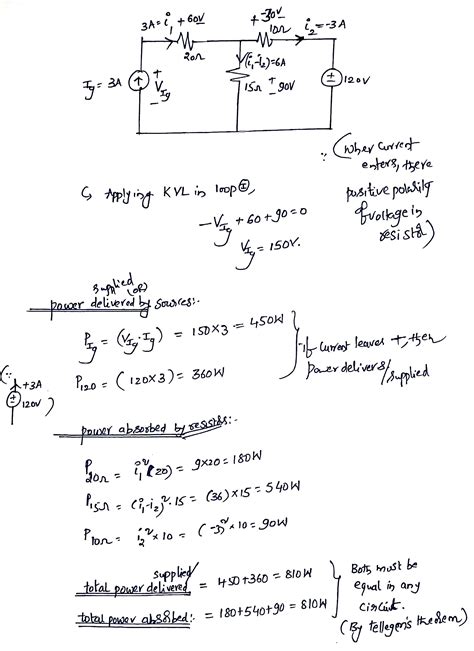 3A = i₁ +60V-
+-30V-
20Ω
10Ω
i₂ = -3A
Ig = 3A
+
VIg
-
(i₁-i₂) = 6A
15Ω
+
90V
-
±
120V
∵ (When current
enters, there
positive polarity
of voltage in
resistor)
Applying KVL in loop ①,
-VIg + 60 + 90 = 0
VIg = 150V.
supplied
(or)
power delivered by sources:-
PIg = (VIg · Ig) = 150×3 = 450W
P120 = (120×3) = 360W
If current leaves +, then
power delivers/supplied
(∵ +3A
± 120V )
power absorbed by resistors:-
P20Ω = i₁²(20) = 9×20 = 180W
P15Ω = (i₁-i₂)²·15 = (36)×15 = 540W
P10Ω = i₂²×10 = (-3)²×10 = 90W
supplied/
total power delivered = 450+360 = 810W
total power absorbed:- = 180+540+90 = 810W
Both must be
equal in any
circuit.
(By tellegen's theorem)